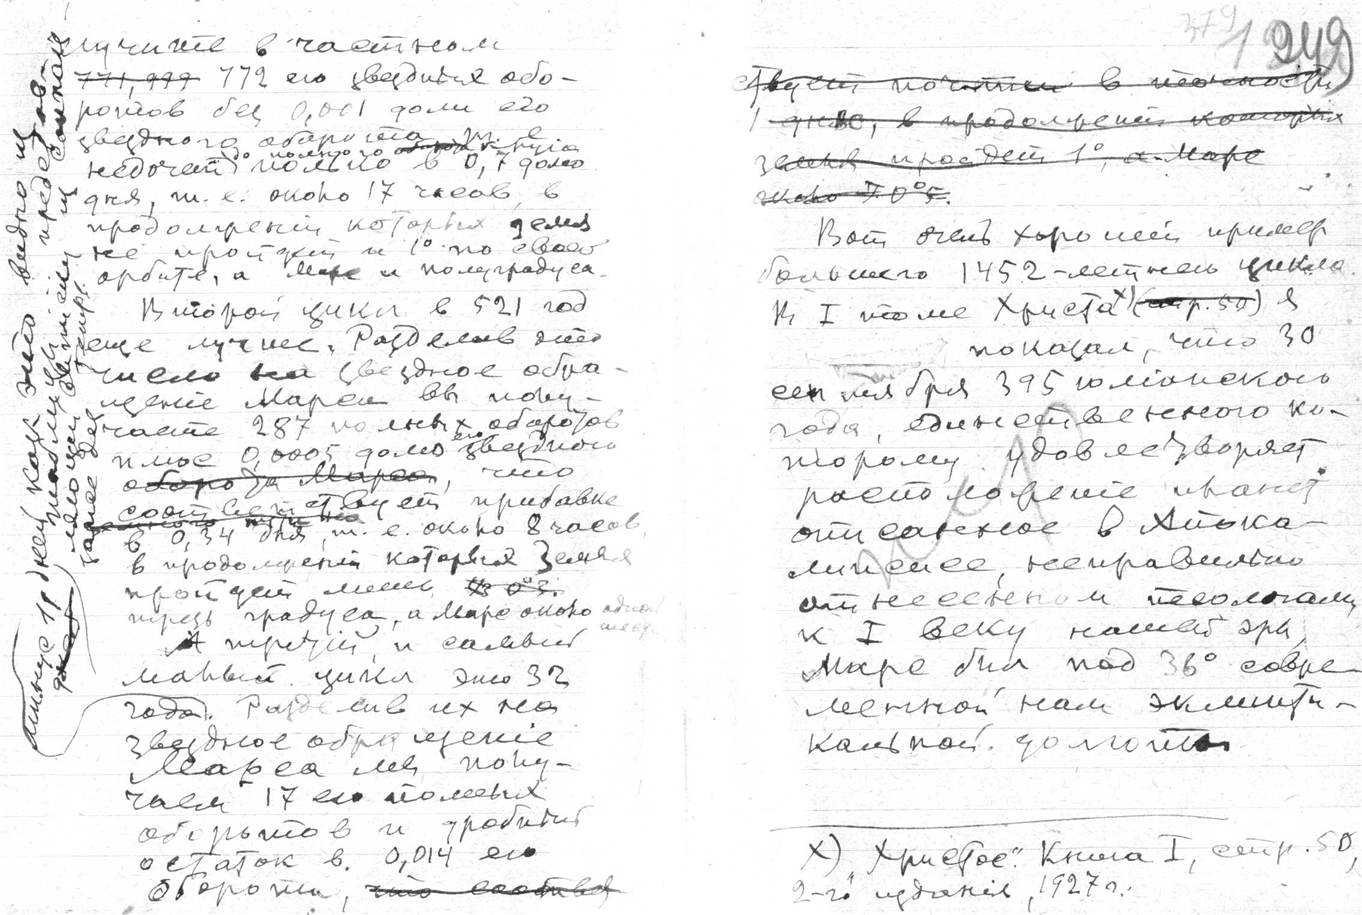 лучите в частном
771,999 772 его звездных обо-
ротов без 0,001 доли его
звездного оборота, т. е.
недочет до полного только в 0,7 долю
дня, т. е. около 17 часов, в
продолжении которых земля
не пройдет и 1° по своей
орбите, а Марс и полградуса.
Второй цикл в 521 год
еще лучше. Разделив это
число на звездное обра-
щение Марса вы полу-
чаете 287 полных оборотов
плюс 0,0005 долю его звездного
оборота Марса, что
соответствует прибавке
в 0,34 дня, т. е. около 8 часов,
в продолжении которых Земля
пройдет лишь
треть градуса, а Марс около одной
А третий, и самый
малый цикл это 32
года. Разделив их на
звездное обращение
Марса мы полу-
чаем 17 его полных
оборотов и дробный
остаток в 0,014 его
оборота, что составл
минус 19 дней, как это видно из
таблицы
379
1249
ствует почти в точности
1 дню, в продолжении которых
земля пройдет 1°, а Марс
около 0°5.
Вот очень хороший пример
большого 1452-летнего цикла.
В I томе Христа х) (стр. 50) я
показал, что 30
сентября 395 юлианского
года, единственного ко-
торому удовлетворяет
расположение планет
описанное в Апока-
липсисе, неправильно
отнесенном теологами
к I веку нашей эры,
Марс был под 36° совре-
менной нам эклипти-
кальной долготы
Х) „Христос". Книга I, стр. 50,
2-го издания, 1927 г.